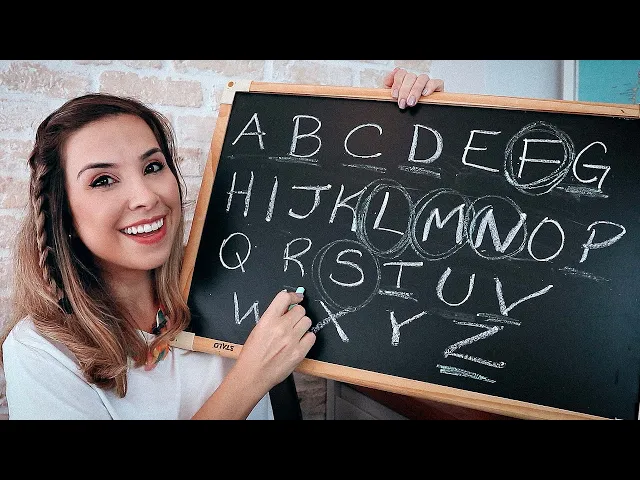 A B C D E F G
H I J K L M N O P
Q R S T U V
W X Y Z
STALO